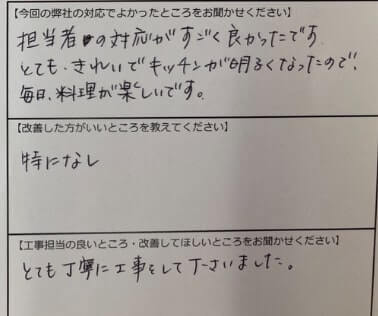 【今回の弊社の対応でよかったところをお聞かせください】
担当者の対応がすごく良かったです
とても、きれいでキッチンが明るくなったので、
毎日、料理が楽しいです。
【改善した方がいいところを教えてください】
特になし
【工事担当の良いところ・改善してほしいところをお聞かせください】
とても丁寧に工事をして下さいました。